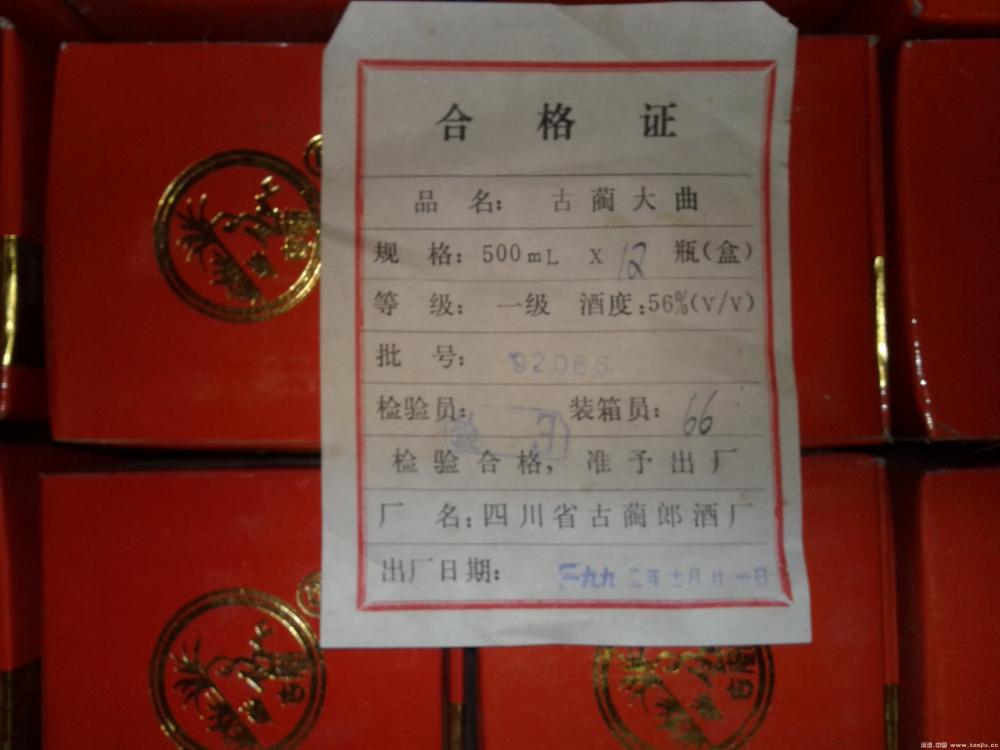 合格证
品名: 古蔺大曲
规格:500mL x 12 瓶(盒)
等级: 一级 酒度:56%(v/v)
批号: 92068
检验员: 装箱员: 66
检验合格,准予出厂
厂名:四川省古蔺郎酒厂
出厂日期: 一九九二年十月廿一日
古蔺
淘酒.中国 www.taojiu.cc